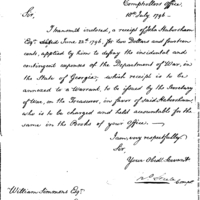 Comptrollers Office
18th July 1796.
Sir,
I transmit inclosed, a receipt of John Habersham
Esqr. dated June 22d 1796, for two Dollars and
cents, applied by him to defray the incidental and
contingent expences of the Department of War, in
the State of Georgia; which receipt is to be
annexed to a Warrant, to be issued by the Secretary
of War, on the Treasurer, in favor of said Habersham,
who is to be charged and held accountable for
the same in the Books of your Office.
I am, very respectfully
Sir
Your Obed. Servant
William Simmons Esqr.